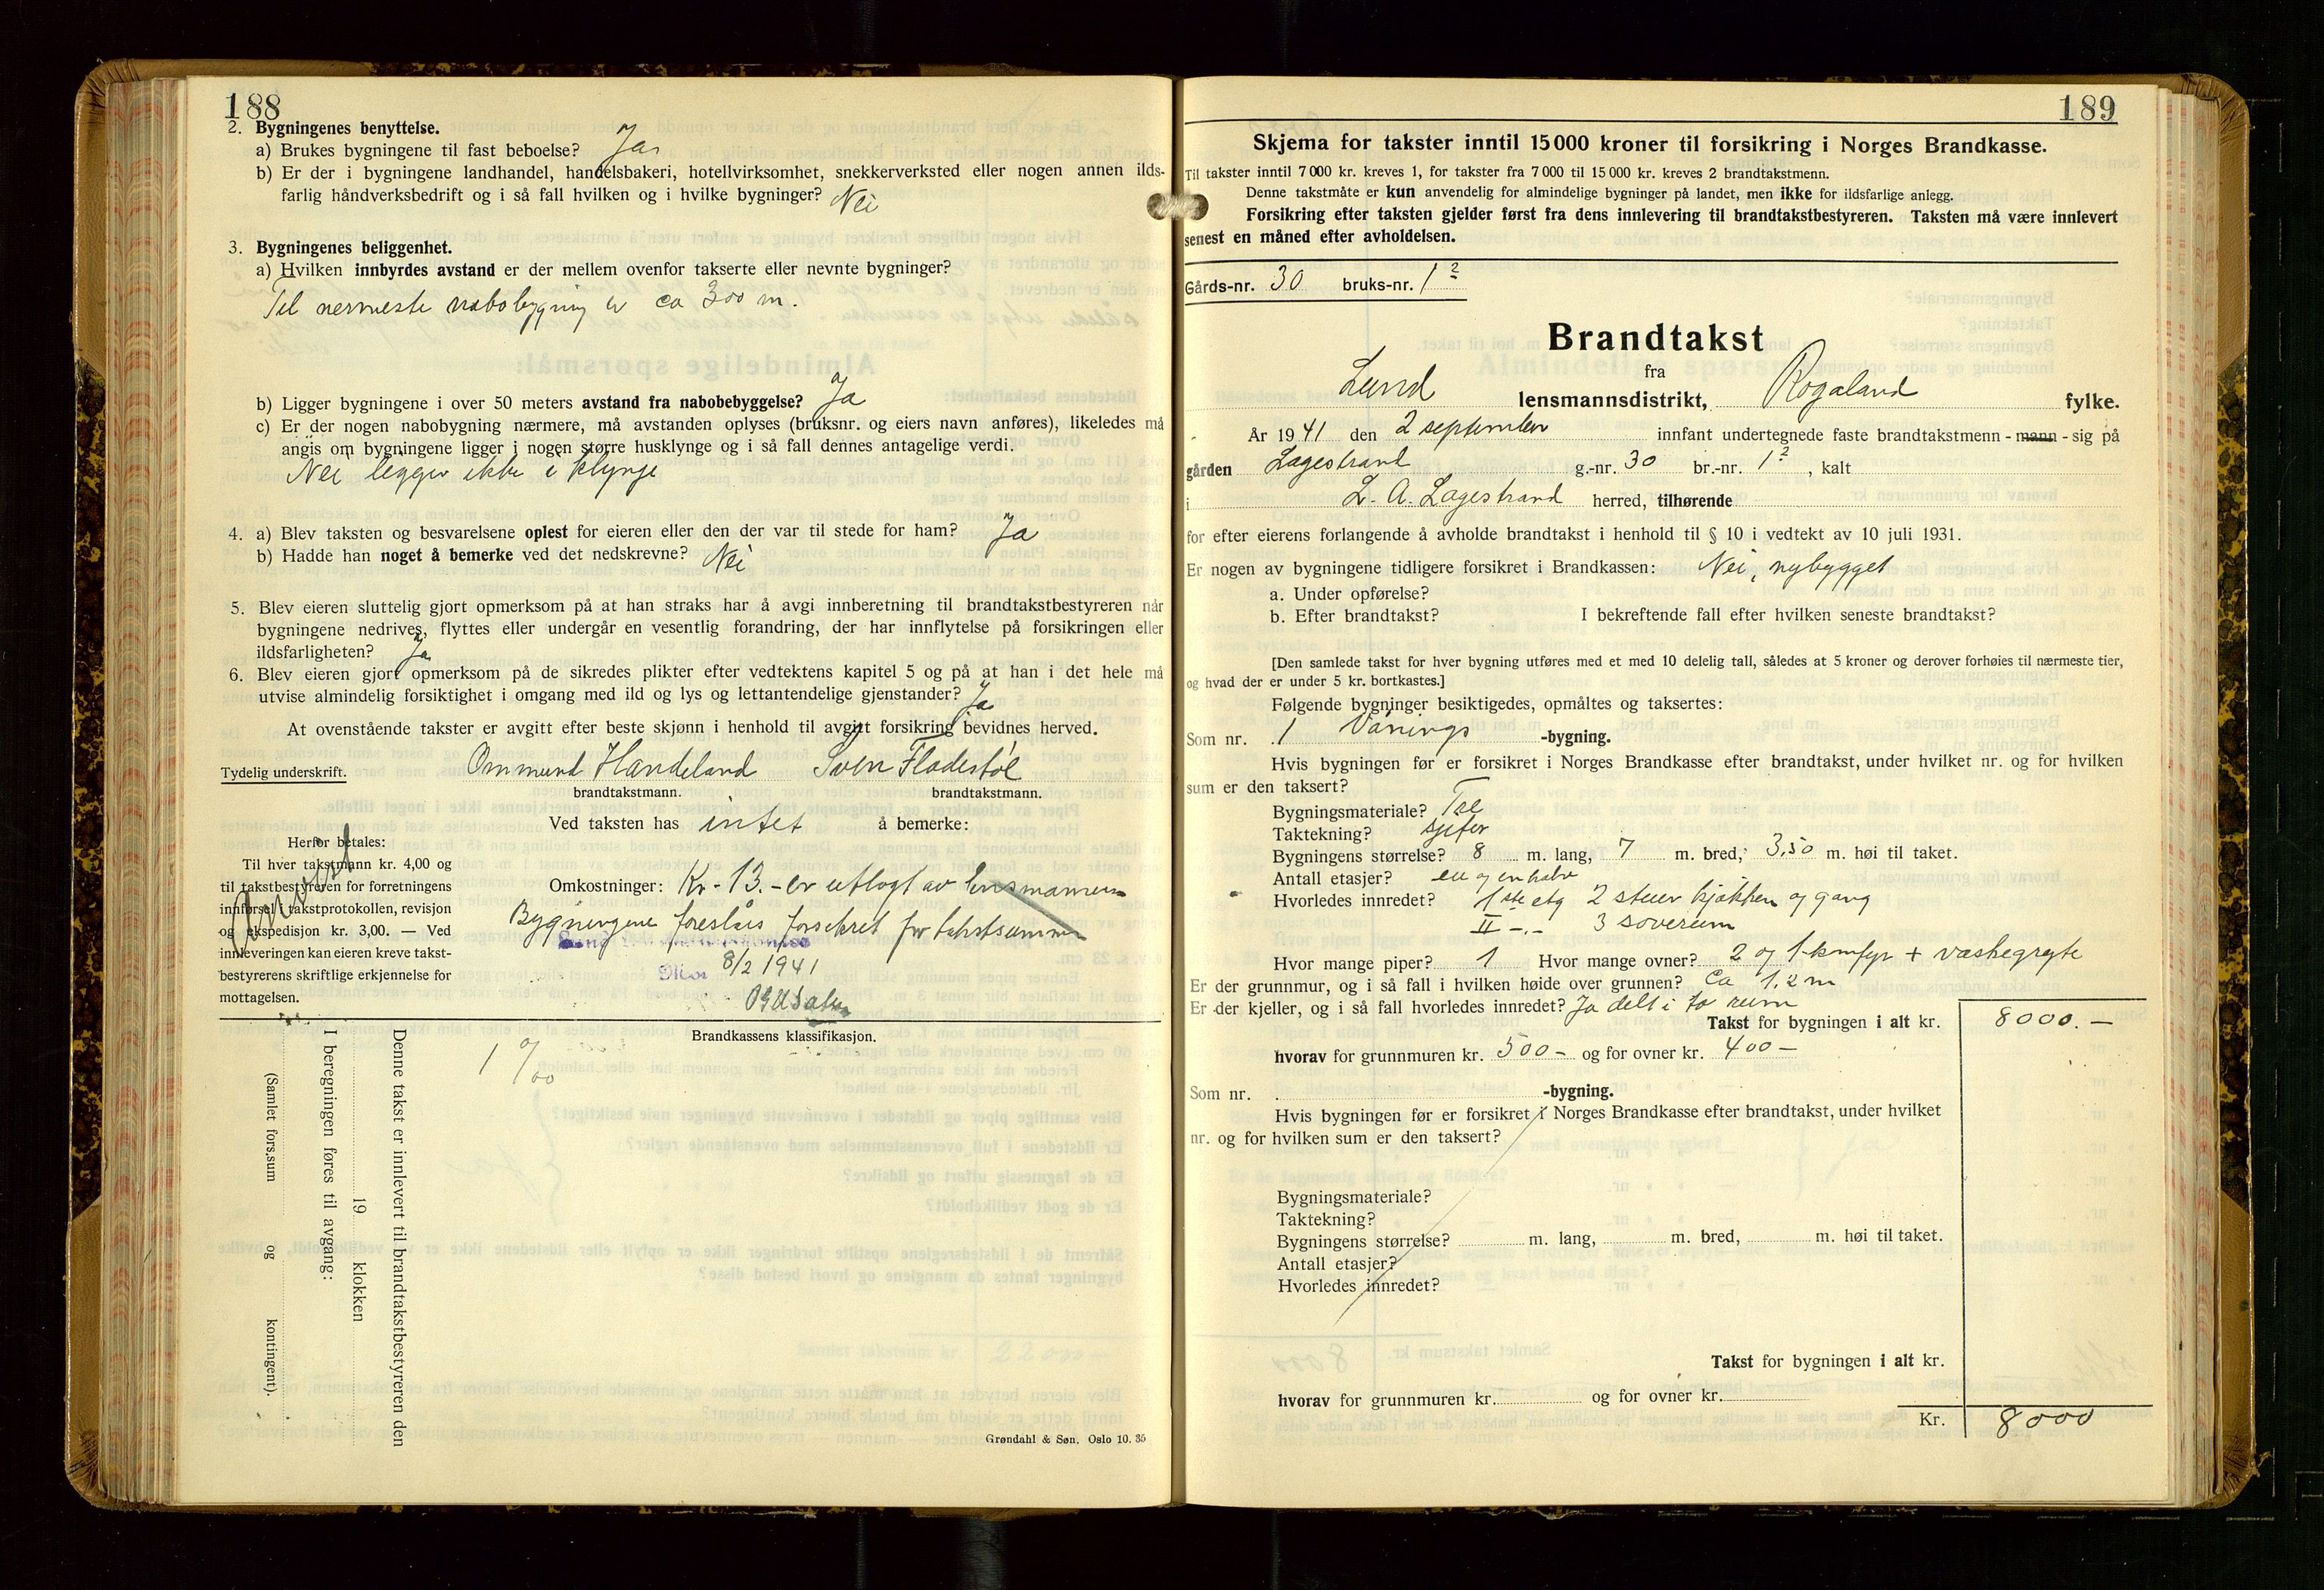 188
2. Bygningenes benyttelse.
a) Brukes bygningene til fast beboelse? Ja
b) Er der i bygningene landhandel, handelsbakeri, hotellvirksomhet, snekkerverksted eller nogen annen ilds-
farlig håndverksbedrift og i så fall hvilken og i hvilke bygninger? Nei
3. Bygningenes beliggenhet.
a) Hvilken innbyrdes avstand er der mellem ovenfor takserte eller nevnte bygninger?
Til nermeste nabobygning er ca 300 m.
b) Ligger bygningene i over 50 meters avstand fra nabobebyggelse? Ja
c) Er der nogen nabobygning nærmere, må avstanden oplyses (bruksnr. og eiers navn anføres), likeledes må
angis om bygningene ligger i nogen større husklynge og i så fall dennes antagelige verdi.
Nei ligger ikke i klynge
4. a) Blev taksten og besvarelsene oplest for eieren eller den der var til stede for ham? Ja
b) Hadde han noget å bemerke ved det nedskrevne? Nei
5. Blev eieren sluttelig gjort opmerksom på at han straks har å avgi innberetning til brandtakstbestyreren når
bygningene nedrives, flyttes eller undergår en vesentlig forandring, der har innflytelse på forsikringen eller
ildsfarligheten? Ja
6. Blev eieren gjort opmerksom på de sikredes plikter efter vedtektens kapitel 5 og på at han i det hele må
utvise almindelig forsiktighet i omgang med ild og lys og lettantendelige gjenstander? Ja
At ovenstående takster er avgitt efter beste skjønn i henhold til avgitt forsikring bevidnes herved.
Tydelig underskrift. Ommund Handeland Sven Flodestøl
brandtakstmann. brandtakstmann.
Ved taksten has intet å bemerke:
Herfor betales:
Til hver takstmann kr. 4,00 og
til takstbestyreren for forretningens
innførsel i takstprotokollen, revisjon
og ekspedisjon kr. 3,00. — Ved
innleveringen kan eieren kreve takst-
bestyrerens skriftlige erkjennelse for
mottagelsen.
Omkostninger: Kr. 13.- er utlagt av lensmannen
Bygningene foreslås forsikret for takstsummen
8/2 1941
Brandkassens klassifikasjon.
1 ‰
Denne takst er innlevert til brandtakstbestyreren den
19 klokken
I beregningen føres til avgang:
(Samlet fors.sum og kontingent).
Grøndahl & Søn. Oslo 10. 35
189
Skjema for takster inntil 15 000 kroner til forsikring i Norges Brandkasse.
Til takster inntil 7 000 kr. kreves 1, for takster fra 7 000 til 15 000 kr. kreves 2 brandtakstmenn.
Denne takstmåte er kun anvendelig for almindelige bygninger på landet, men ikke for ildsfarlige anlegg.
Forsikring efter taksten gjelder først fra dens innlevering til brandtakstbestyreren. Taksten må være innlevert
senest en måned efter avholdelsen.
Gårds-nr. 30 bruks-nr. 1 2
Brandtakst
fra
Lund lensmannsdistrikt, Rogaland fylke.
År 1941 den 2 september innfant undertegnede faste brandtakstmenn - mann - sig på
gården Lagestrand g.-nr. 30 br.-nr. 1 2, kalt
i L. A. Lagestrand herred, tilhørende
for efter eierens forlangende å avholde brandtakst i henhold til § 10 i vedtekt av 10 juli 1931.
Er nogen av bygningene tidligere forsikret i Brandkassen: Nei, nybygget
a. Under opførelse?
b. Efter brandtakst? I bekreftende fall efter hvilken seneste brandtakst?
[Den samlede takst for hver bygning utføres med et med 10 delelig tall, således at 5 kroner og derover forhøies til nærmeste tier,
og hvad der er under 5 kr. bortkastes.]
Følgende bygninger besiktigedes, opmåltes og taksertes:
Som nr. 1 Vånings -bygning.
Hvis bygningen før er forsikret i Norges Brandkasse efter brandtakst, under hvilket nr. og for hvilken
sum er den taksert?
Bygningsmateriale? Tre
Taktekning? Sjefer
Bygningens størrelse? 8 m. lang, 7 m. bred, 3,50 m. høi til taket.
Antall etasjer? en og en halv
Hvorledes innredet? 1ste etg 2 stuer kjøkken og gang
II -.- 3 soverum
Hvor mange piper? 1 Hvor mange ovner? 2 og 1 komfyr + vaskegryte
Er der grunnmur, og i så fall i hvilken høide over grunnen? Ca 1,2 m
Er der kjeller, og i så fall hvorledes innredet? Ja delt i to rum
Takst for bygningen i alt kr. 8000.—
hvorav for grunnmuren kr. 500— og for ovner kr. 400—
Som nr. -bygning.
Hvis bygningen før er forsikret i Norges Brandkasse efter brandtakst, under hvilket
nr. og for hvilken sum er den taksert?
Bygningsmateriale?
Taktekning?
Bygningens størrelse? m. lang, m. bred, m. høi til taket.
Antall etasjer?
Hvorledes innredet?
Takst for bygningen i alt kr.
hvorav for grunnmuren kr. og for ovner kr.
Kr. 8000